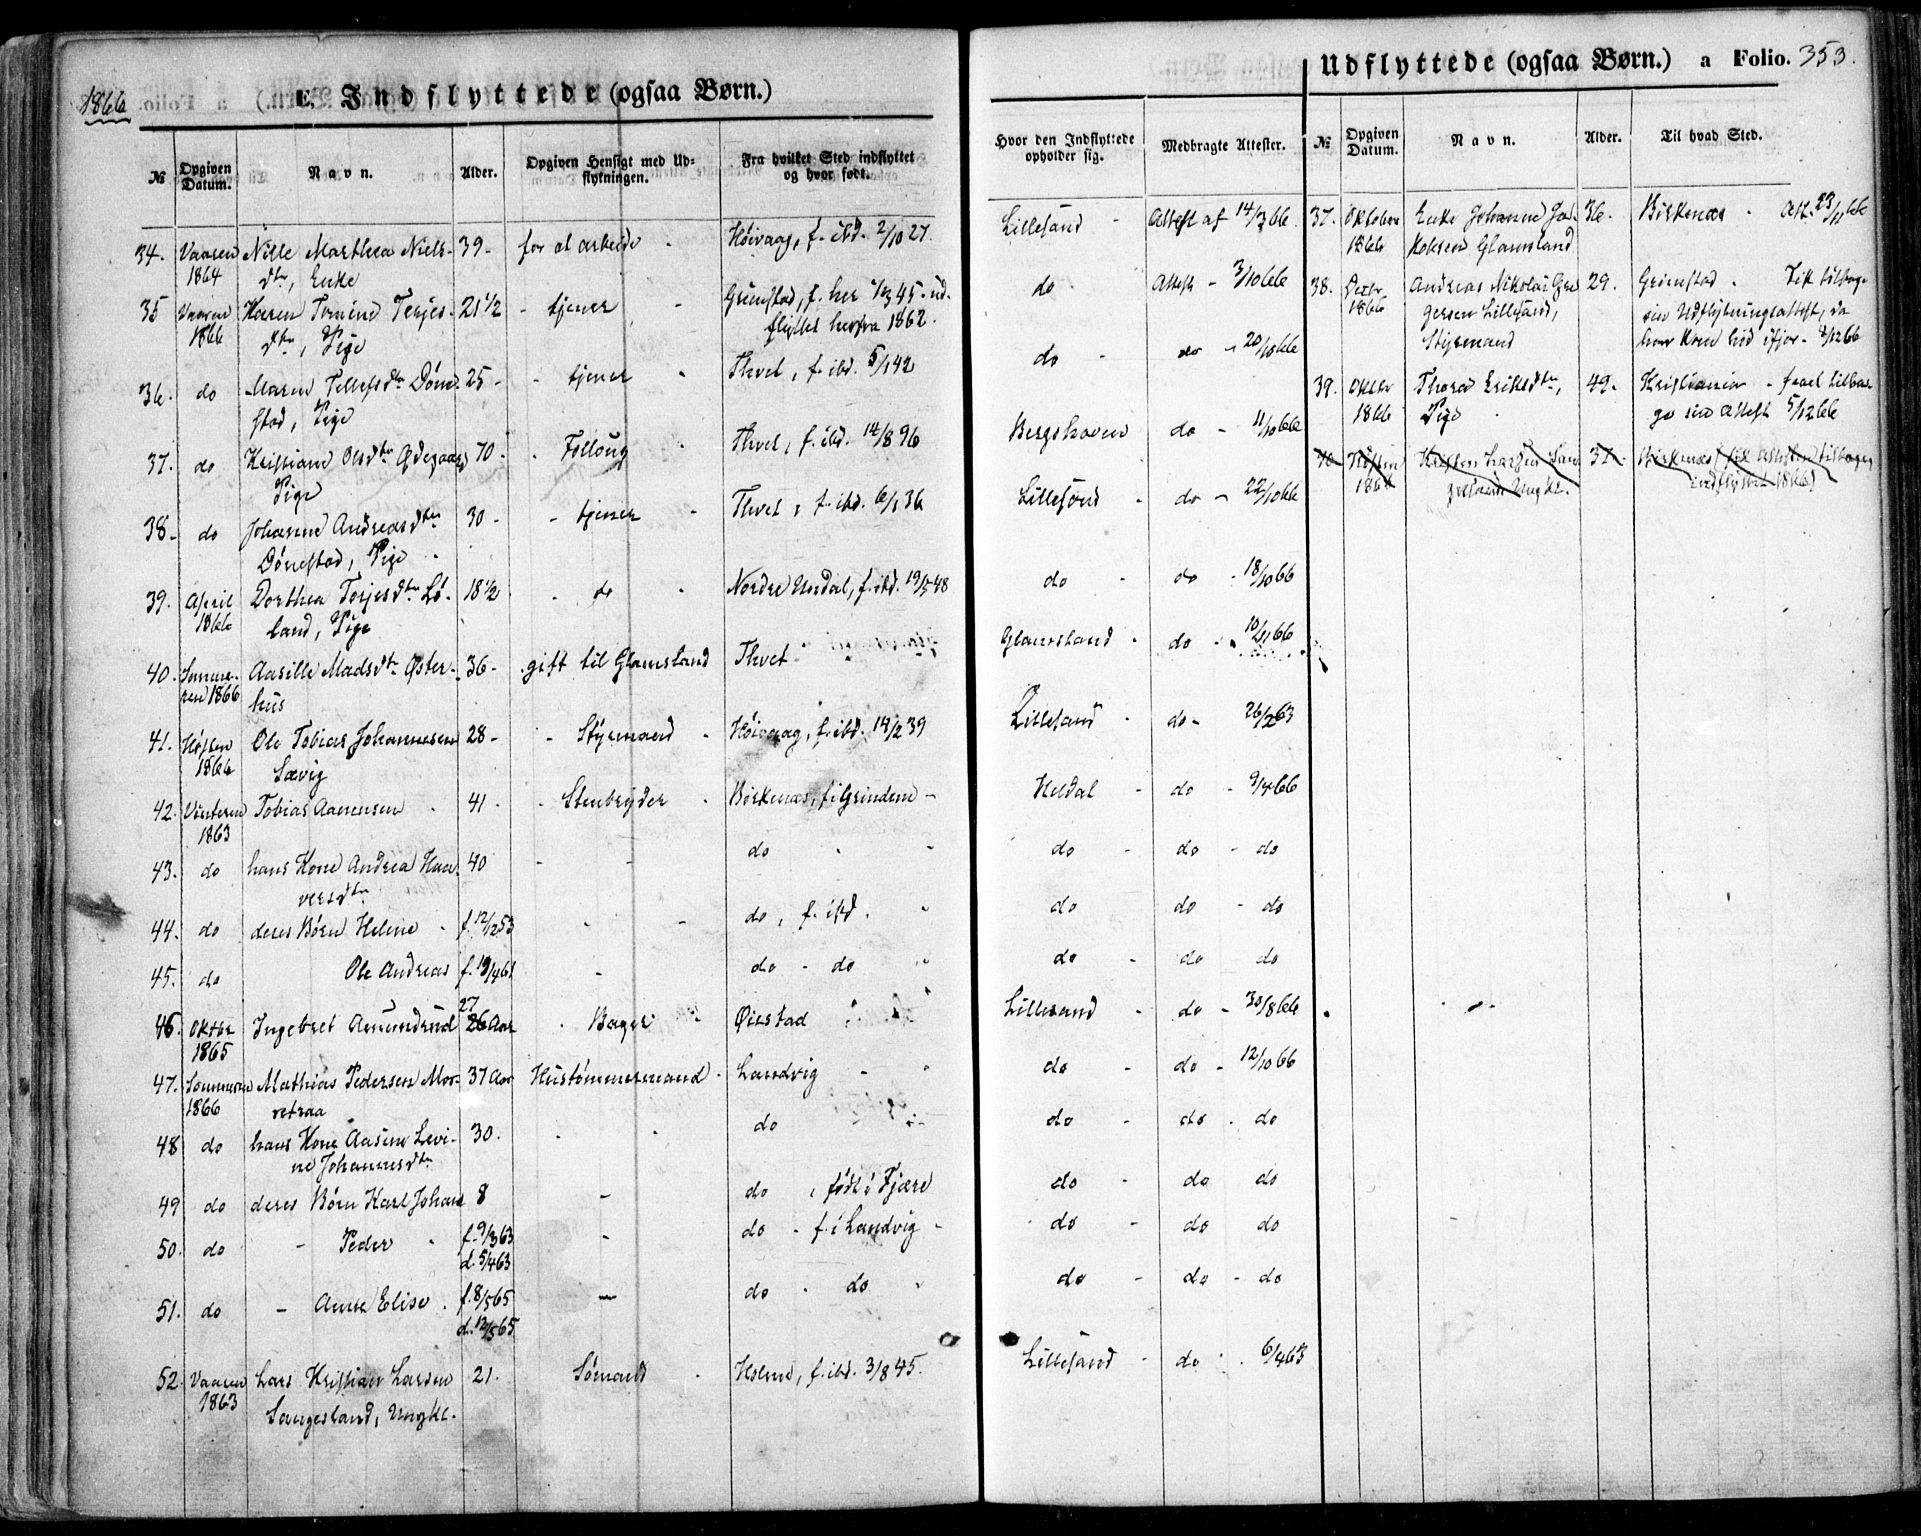 1866
E. Indflyttede (ogsaa Børn.)
№ Opgiven Datum. Navn. Alder. Opgiven Hensigt med Udflytningen. Fra hvilket Sted indflyttet og hvor født. Hvor den Indflyttede opholder sig. Medbragte Attester.
34. Vaaren Nille Marthea Niels- 39- for at arbeide Høivaag, f. ibd. 2/10 27. Lillesand Attest af 14/3 66
1864 dtr, Enke
35 Vaaren Karen Tomine Terjes- 21 1/2 - tjener Grimstad, f. her 1/3 45 - ud- do Attest - 3/10 66
1866 dtr, Pige flyttet herfra 1862.
36. do Maren Tellefsdtr Døne- 25- - tjener Thvet, f. ibd. 5/1 42 do do - 20/10 66
stad, Pige
37. do Kristiane Olsdtr Ødegaard 70- Følloug Thvet, f. ibd. 14/8 96 Bergshaven do - 11/10 66
Pige
38- do Johanne Andreasdtr 30- - tjener Thvet, f. ibd. 6/1 36 Lillesand do - 22/10 66
Dønestad, Pige
39. April Dorthea Terjesdtr Lø- 18 1/2 do Nordre Undal, f. ibd. 19/5 48 do do - 18/10 66
1866 land, Pige
40. Somme- Aasille Madsdtr Øster- 36- gift til Glamsland Thvet Glamsland do 10/11 66
ren 1866 hus
41. Høsten Ole Tobias Johannesen 28- - Styrmand Høivaag, f. ibd. 14/2 39 Lillesand do- 26/2 63
1866 Sævig
42. Vinteren Tobias Aanensen 41- - Stenbryder Birkenæs, f. i Grindem - Heldal do - 9/4 66
1863
43. do hans Kone Andrea Haa- 40 - - do do do - do
versdtr
44. do deres Børn Helene f. 12/2 53 do, f. ibd. do do - do
45. do Ole Andreas f. 19/4 61 - do - do do do do
46. Oktbr Ingebret Amundsrud 27 26 Aar Bager Øiestad Lillesand do - 30/8 66
1865
47. Sommeren Mathias Pedersen Mor- 37 Aar Hustømmermand Landvig do do - 12/10 66
1866 retraa
48 do hans Kone Aasine Levi- 30. do do do - do
ne Johannesdtr
49 do deres Børn Karl Johan 8 - do, født i Fjære do do do
50. do - Peder f. 9/3 63 - do - f. i Landvig - do do do
d. 5/4 63
51. do - Anne Elise f. 8/5 65 - do - do do do - do
d. 12/5 65
52. Vaaren Lars Kristian Larsen 21. Sømand Holme, f. ibd. 3/8 45. Lillesand do 6/4 63
1863 Sangesland, Ungkl.
Udflyttede (ogsaa Børn.) a Folio. 353.
№ Opgiven Datum. Navn. Alder. Til hvad Sted.
37. Oktober Enke Johanne Ja- 36- Birkenæs - Att. 23/11 66
1866 kobsen Glamsland
38. Dezbr Andreas Nikolai Gre- 29. Grimstad - Fik tilbage
1866 gersen Lillesand, sin Udflytningsattest, da
Styrmand han kom hid ifjor - 4/12 66
39. Oktbr Thora Eriksdtr, 49- Kristiania - fået tilba-
1866 Pige ge sin Attest 5/12 66
40 Høsten Kristen Larsen San- 31 Birkenæs (fik Attesten tilbage,
1866 gesland Ungkl. indflyttet 1866)